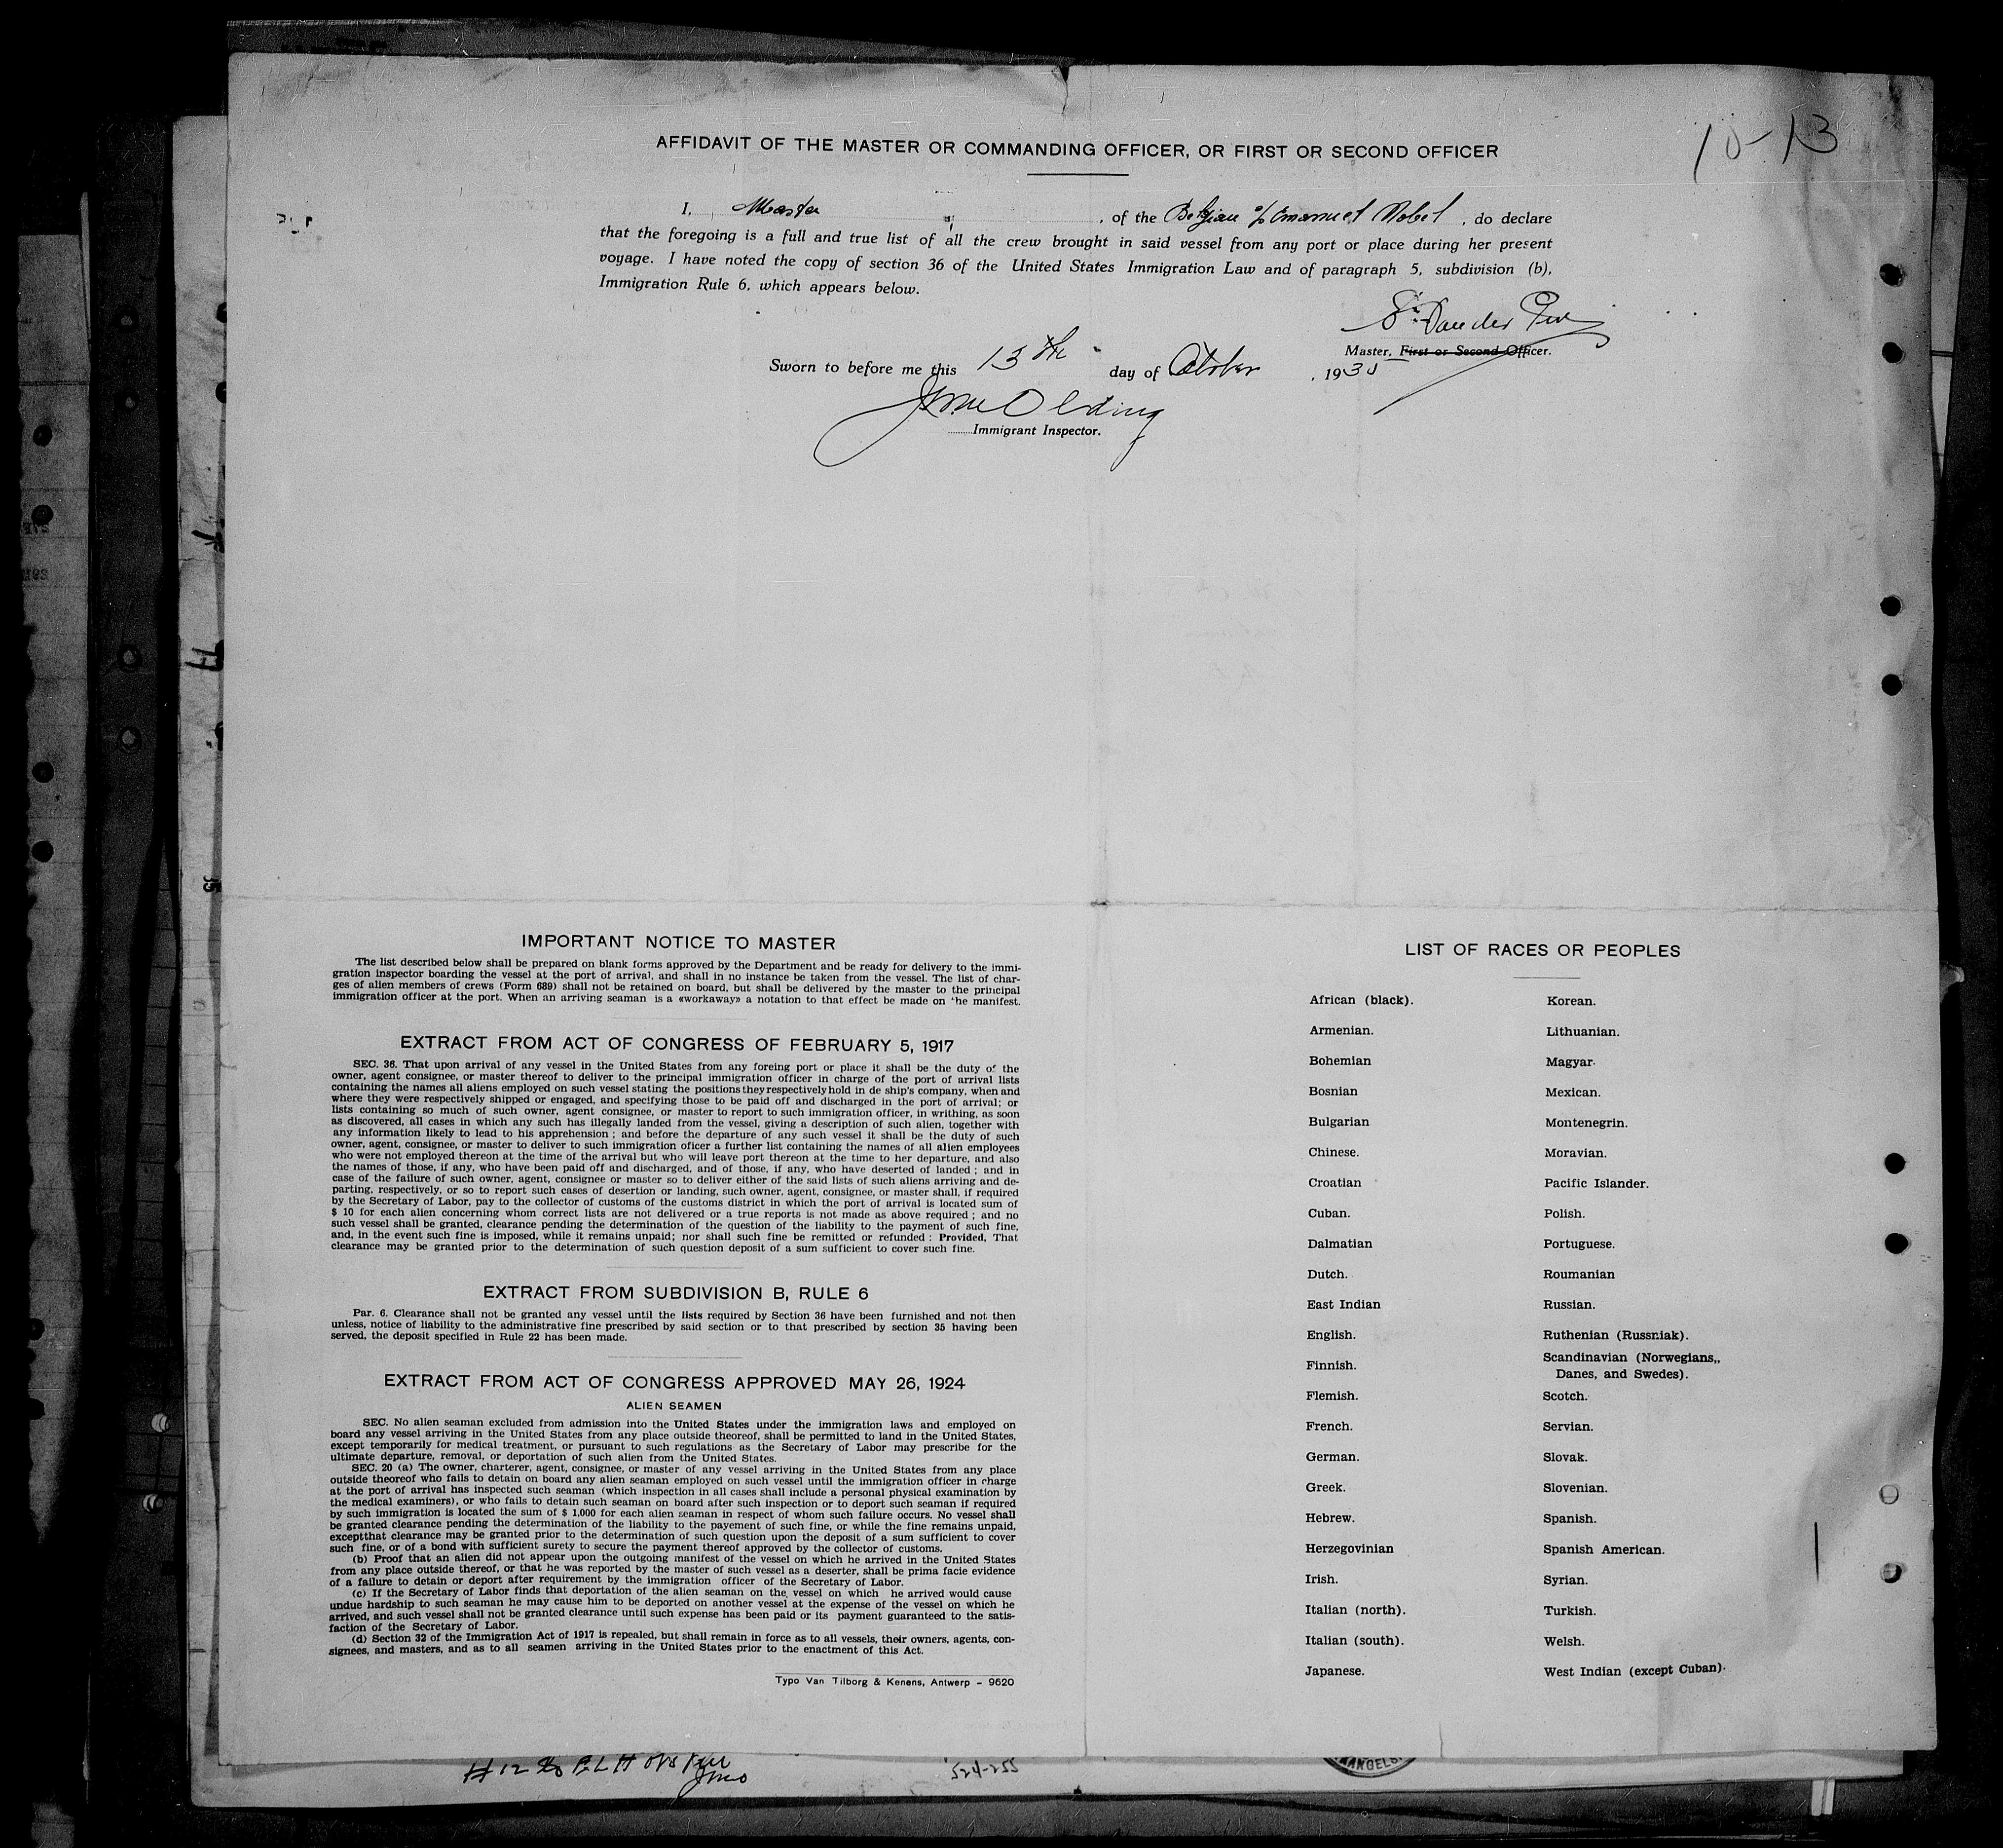 10-13
AFFIDAVIT OF THE MASTER OR COMMANDING OFFICER, OR FIRST OR SECOND OFFICER
I, Master , of the Belgian S/S Emanuel Nobel , do declare
that the foregoing is a full and true list of all the crew brought in said vessel from any port or place during her present
voyage. I have noted the copy of section 36 of the United States Immigration Law and of paragraph 5, subdivision (b),
Immigration Rule 6, which appears below.
Master, First or Second Officer.
Sworn to before me this 13th day of October , 193
Immigrant Inspector.
IMPORTANT NOTICE TO MASTER
The list described below shall be prepared on blank forms approved by the Department and be ready for delivery to the immi-
gration inspector boarding the vessel at the port of arrival, and shall in no instance be taken from the vessel. The list of char-
ges of alien members of crews (Form 689) shall not be retained on board, but shall be delivered by the master to the principal
immigration officer at the port. When an arriving seaman is a «workaway» a notation to that effect be made on 'he manifest.
EXTRACT FROM ACT OF CONGRESS OF FEBRUARY 5, 1917
SEC. 36. That upon arrival of any vessel in the United States from any foreing port or place it shall be the duty of the
owner, agent consignee, or master thereof to deliver to the principal immigration officer in charge of the port of arrival lists
containing the names all aliens employed on such vessel stating the positions they respectively hold in de ship's company, when and
where they were respectively shipped or engaged, and specifying those to be paid off and discharged in the port of arrival; or
lists containing so much of such owner, agent consignee, or master to report to such immigration officer, in writhing, as soon
as discovered, all cases in which any such has illegally landed from the vessel, giving a description of such alien, together with
any information likely to lead to his apprehension ; and before the departure of any such vessel it shall be the duty of such
owner, agent, consignee, or master to deliver to such immigration oficer a further list containing the names of all alien employees
who were not employed thereon at the time of the arrival but who will leave port thereon at the time to her departure, and also
the names of those, if any, who have been paid off and discharged, and of those, if any, who have deserted of landed ; and in
case of the failure of such owner, agent, consignee or master so to deliver either of the said lists of such aliens arriving and de-
parting, respectively, or so to report such cases of desertion or landing, such owner, agent, consignee, or master shall, if required
by the Secretary of Labor, pay to the collector of customs of the customs district in which the port of arrival is located sum of
$ 10 for each alien concerning whom correct lists are not delivered or a true reports is not made as above required ; and no
such vessel shall be granted, clearance pending the determination of the question of the liability to the payment of such fine,
and, in the event such fine is imposed, while it remains unpaid; nor shall such fine be remitted or refunded : Provided, That
clearance may be granted prior to the determination of such question deposit of a sum sufficient to cover such fine.
EXTRACT FROM SUBDIVISION B, RULE 6
Par. 6. Clearance shall not be granted any vessel until the lists required by Section 36 have been furnished and not then
unless, notice of liability to the administrative fine prescribed by said section or to that prescribed by section 35 having been
served, the deposit specified in Rule 22 has been made.
EXTRACT FROM ACT OF CONGRESS APPROVED MAY 26, 1924
ALIEN SEAMEN
SEC. No alien seaman excluded from admission into the United States under the immigration laws and employed on
board any vessel arriving in the United States from any place outside theoreof, shall be permitted to land in the United States,
except temporarily for medical treatment, or pursuant to such regulations as the Secretary of Labor may prescribe for the
ultimate departure, removal, or deportation of such alien from the United States.
SEC. 20 (a) The owner, charterer, agent, consignee, or master of any vessel arriving in the United States from any place
outside theoreof who fails to detain on board any alien seaman employed on such vessel until the immigration officer in charge
at the port of arrival has inspected such seaman (which inspection in all cases shall include a personal physical examination by
the medical examiners), or who fails to detain such seaman on board after such inspection or to deport such seaman if required
by such immigration is located the sum of $ 1,000 for each alien seaman in respect of whom such failure occurs. No vessel shall
be granted clearance pending the determination of the liability to the payement of such fine, or while the fine remains unpaid,
exceptthat clearance may be granted prior to the determination of such question upon the deposit of a sum sufficient to cover
such fine, or of a bond with sufficient surety to secure the payment thereof approved by the collector of customs.
(b) Proof that an alien did not appear upon the outgoing manifest of the vessel on which he arrived in the United States
from any place outside thereof, or that he was reported by the master of such vessel as a deserter, shall be prima facie evidence
of a failure to detain or deport after requirement by the immigration officer of the Secretary of Labor.
(c) If the Secretary of Labor finds that deportation of the alien seaman on the vessel on which he arrived would cause
undue hardship to such seaman he may cause him to be deported on another vessel at the expense of the vessel on which he
arrived, and such vessel shall not be granted clearance until such expense has been paid or its payment guaranteed to the satis-
faction of the Secretary of Labor.
(d) Section 32 of the Immigration Act of 1917 is repealed, but shall remain in force as to all vessels, their owners, agents, con-
signees, and masters, and as to all seamen arriving in the United States prior to the enactment of this Act.
Typo Van Tilborg & Kenens, Antwerp - 9620
LIST OF RACES OR PEOPLES
African (black).
Armenian.
Bohemian
Bosnian
Bulgarian
Chinese.
Croatian
Cuban.
Dalmatian
Dutch.
East Indian
English.
Finnish.
Flemish.
French.
German.
Greek.
Hebrew.
Herzegovinian
Irish.
Italian (north).
Italian (south).
Japanese.
Korean.
Lithuanian.
Magyar.
Mexican.
Montenegrin.
Moravian.
Pacific Islander.
Polish.
Portuguese.
Roumanian
Russian.
Ruthenian (Russniak).
Scandinavian (Norwegians,,
Danes, and Swedes).
Scotch.
Servian.
Slovak.
Slovenian.
Spanish.
Spanish American.
Syrian.
Turkish.
Welsh.
West Indian (except Cuban).
524-255